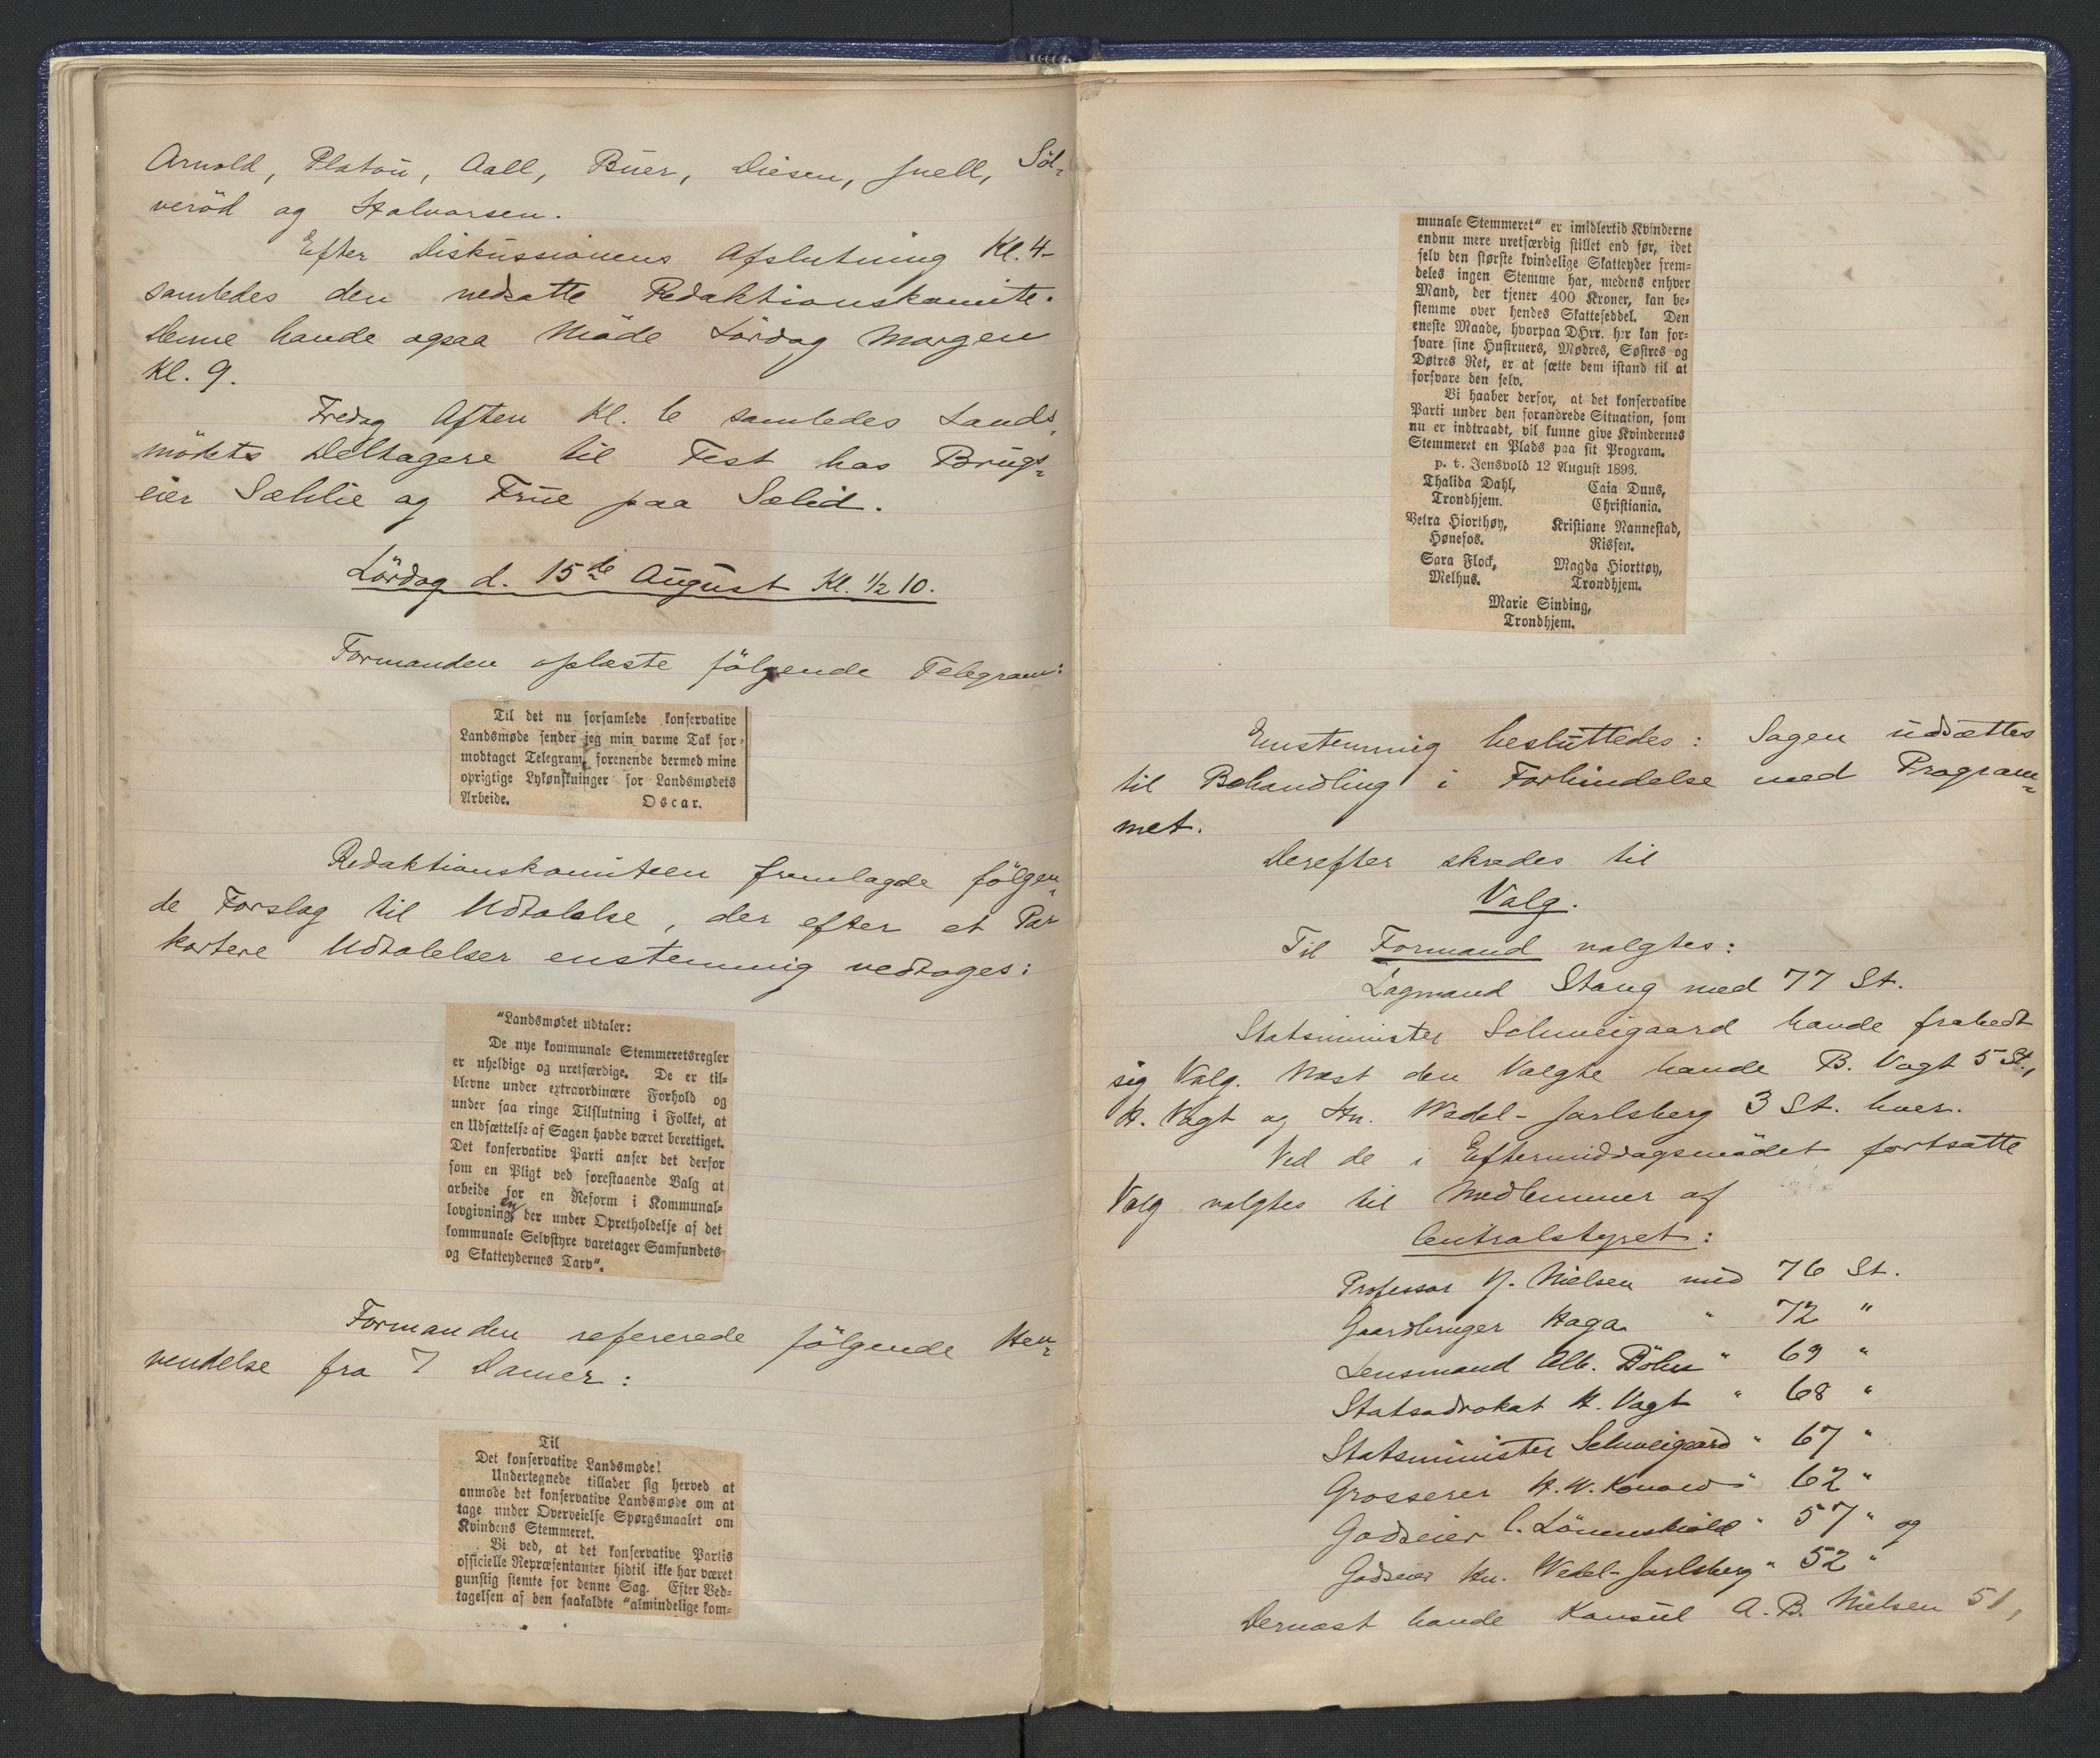 Arnold, Platou, Aall, Buer, Diesen, Juell, Söl-
veröd og Halvorsen.
Efter Diskussionens Afslutning Kl. 4-
samledes den nedsatte Redaktionskomite.
Denne havde ogsaa Möde Lördag Morgen
Kl. 9.
Fredag Aften Kl. 6 samledes Lands-
mödets Deltagere til Fest hos Brugs-
eier Sæhlie og Frue paa Sælid.
Lördag d. 15de August Kl. ½ 10.
Formanden oplæste følgende Telegram:
Til det nu forsamlede konservative
Landsmøde sender jeg min varme Tak for
modtaget Telegram, forenende dermed mine
oprigtige Lykønskninger for Landsmødets
Arbeide. Oscar.
Redaktionskomiteen fremlagde fölgen-
de Forslag til Udtalelse, der efter et Par
kortere Udtalelser enstemmig vedtoges:
"Landsmødet udtaler:
De nye kommunale Stemmeretsregler
er uheldige og uretfærdige. De er til-
blevne under extraordinære Forhold og
under saa ringe Tilslutning i Folket, at
en Udsættelse af Sagen havde været berettiget.
Det konservative Parti anser det derfor
som en Pligt ved forestaaende Valg at
arbeide for en Reform i Kommunal-
lovgivningen, der under Opretholdelse af det
kommunale Selvstyre varetager Samfundets
og Skatteydernes Tarv".
Formanden refererede fölgende Hen-
vendelse fra 7 Damer:
Til
Det konservative Landsmøde!
Undertegnede tillader sig herved at
anmode det konservative Landsmøde om at
tage under Overveielse Spørgsmaalet om
Kvindens Stemmeret.
Vi ved, at det konservative Partis
officielle Repræsentanter hidtil ikke har været
gunstig stemte for denne Sag. Efter Ved-
tagelsen af den saakaldte "almindelige kom-
munale Stemmeret" er imidlertid Kvinderne
endnu mere uretfærdig stillet end før, idet
selv den største kvindelige Skatteyder frem-
deles ingen Stemme har, medens enhver
Mand, der tjener 400 Kroner, kan be-
stemme over hendes Skatteseddel. Den
eneste Maade, hvorpaa DHrr. her kan for-
svare sine Hustruers, Mødres, Søstres og
Døtres Ret, er at sætte dem istand til at
forsvare den selv.
Vi haaber derfor, at det konservative
Parti under den forandrede Situation, som
nu er indtraadt, vil kunne give Kvindernes
Stemmeret en Plads paa sit Program.
p. t. Jensvold 12 August 1896.
Thalida Dahl, Caia Duus,
Trondhjem. Christiania.
Petra Hiorthøy, Kristiane Nannestad,
Hønefos. Rissen.
Sara Flock, Magda Hiorttøy,
Melhus. Trondhjem.
Marie Sinding,
Trondhjem.
Enstemmig besluttedes: Sagen udsættes
til Behandling i Forbindelse med Program-
met.
Derefter skredes til
Valg.
Til Formand valgtes:
Lagmand Stang med 77 St.
Statsminister Schweigaard havde frabedt
sig Valg. Næst den Valgte havde B. Vogt 5 St.,
H. Vogt og Hn. Wedel-Jarlsberg 3 St. hver.
Ved de i Eftermiddagsmödet fortsatte
Valg valgtes til Medlemmer af
Centralstyret:
Professor Y. Nielsen med 76 St.
Gaardbruger Haga " 72 "
Lensmand Alb. Böhn " 69 "
Statsadvokat H. Vogt " 68 "
Statsminister Schweigaard " 67 "
Grosserer H. W. Konow " 62 "
Godseier C. Lövenskiold " 57 " og
Godseier Hn. Wedel-Jarlsberg " 52 "
Dernæst havde Konsul A. B. Nielsen 51,